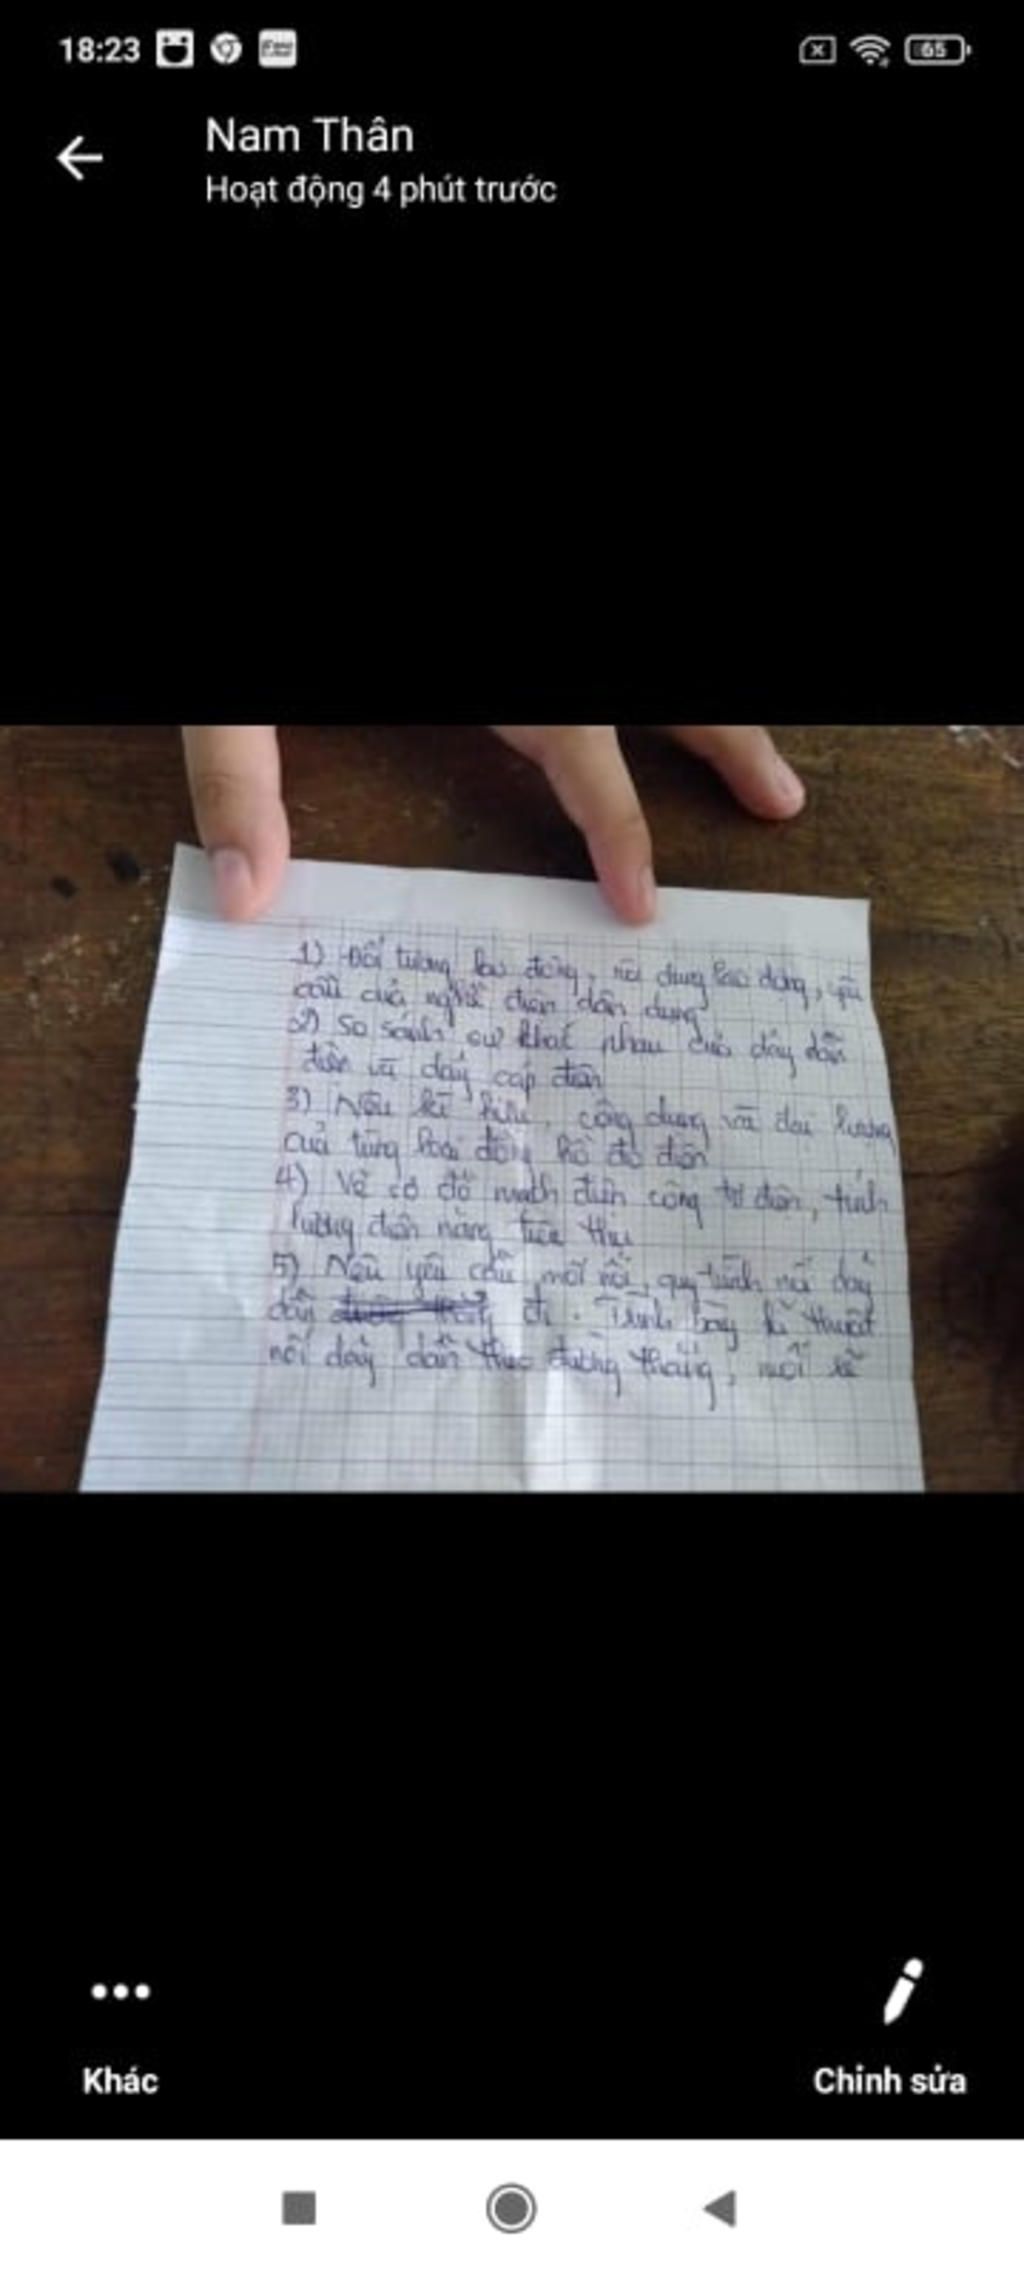 18:23
65
Nam Thân
Hoạt động 4 phút trước
1) Đối tượng lao động, nội dung lao động, yêu
cầu của nghề điện dân dụng
2) So sánh sự khác nhau của dây dẫn
điện và dây cáp điện
3) Nêu kí hiệu, công dụng và đại lượng
của từng loại đồng hồ đo điện
4) Vẽ sơ đồ mạch điện công tơ điện, tính
lượng điện năng tiêu thụ
5) Nêu yêu cầu mối nối, quy trình nối dây
dẫn đi. Trình bày kĩ thuật
nối dây dẫn theo đường thẳng, nối rẽ
Khác
Chỉnh sửa